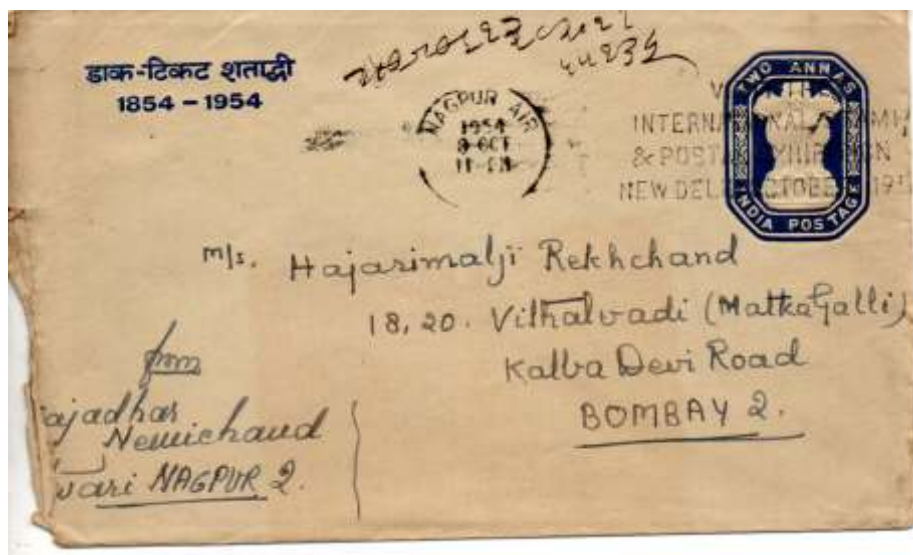 डाक-टिकट शताब्दी
1854 - 1954
NAGPUR AIR
1954
8 OCT
11-PM
INTERN
& POST
NEW DEL
TWO ANNAS
INDIA POSTAGE
M/s. Hajarimalji Rekhchand
18, 20. Vithalvadi (Matka Galli)
Kalba Devi Road
BOMBAY 2.
from
ajadhar
Nemichand
wari NAGPUR 2.